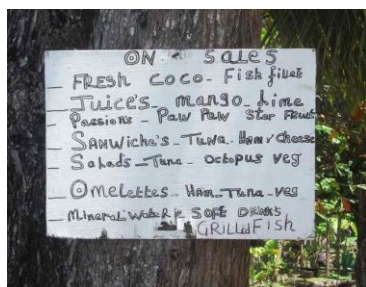 ON SALES
_ FRESH COCO - Fish filet
_ Juice's - mango - Lime
_ Passions - Paw Paw Star Fruit
_ SANWicha's - Tuna - Ham/Cheese
_ Salads - Tuna - octopus veg
_ Omelettes - Ham - Tuna - veg
_ Mineral WateR SOFE DRINKS
GRILLed FISH